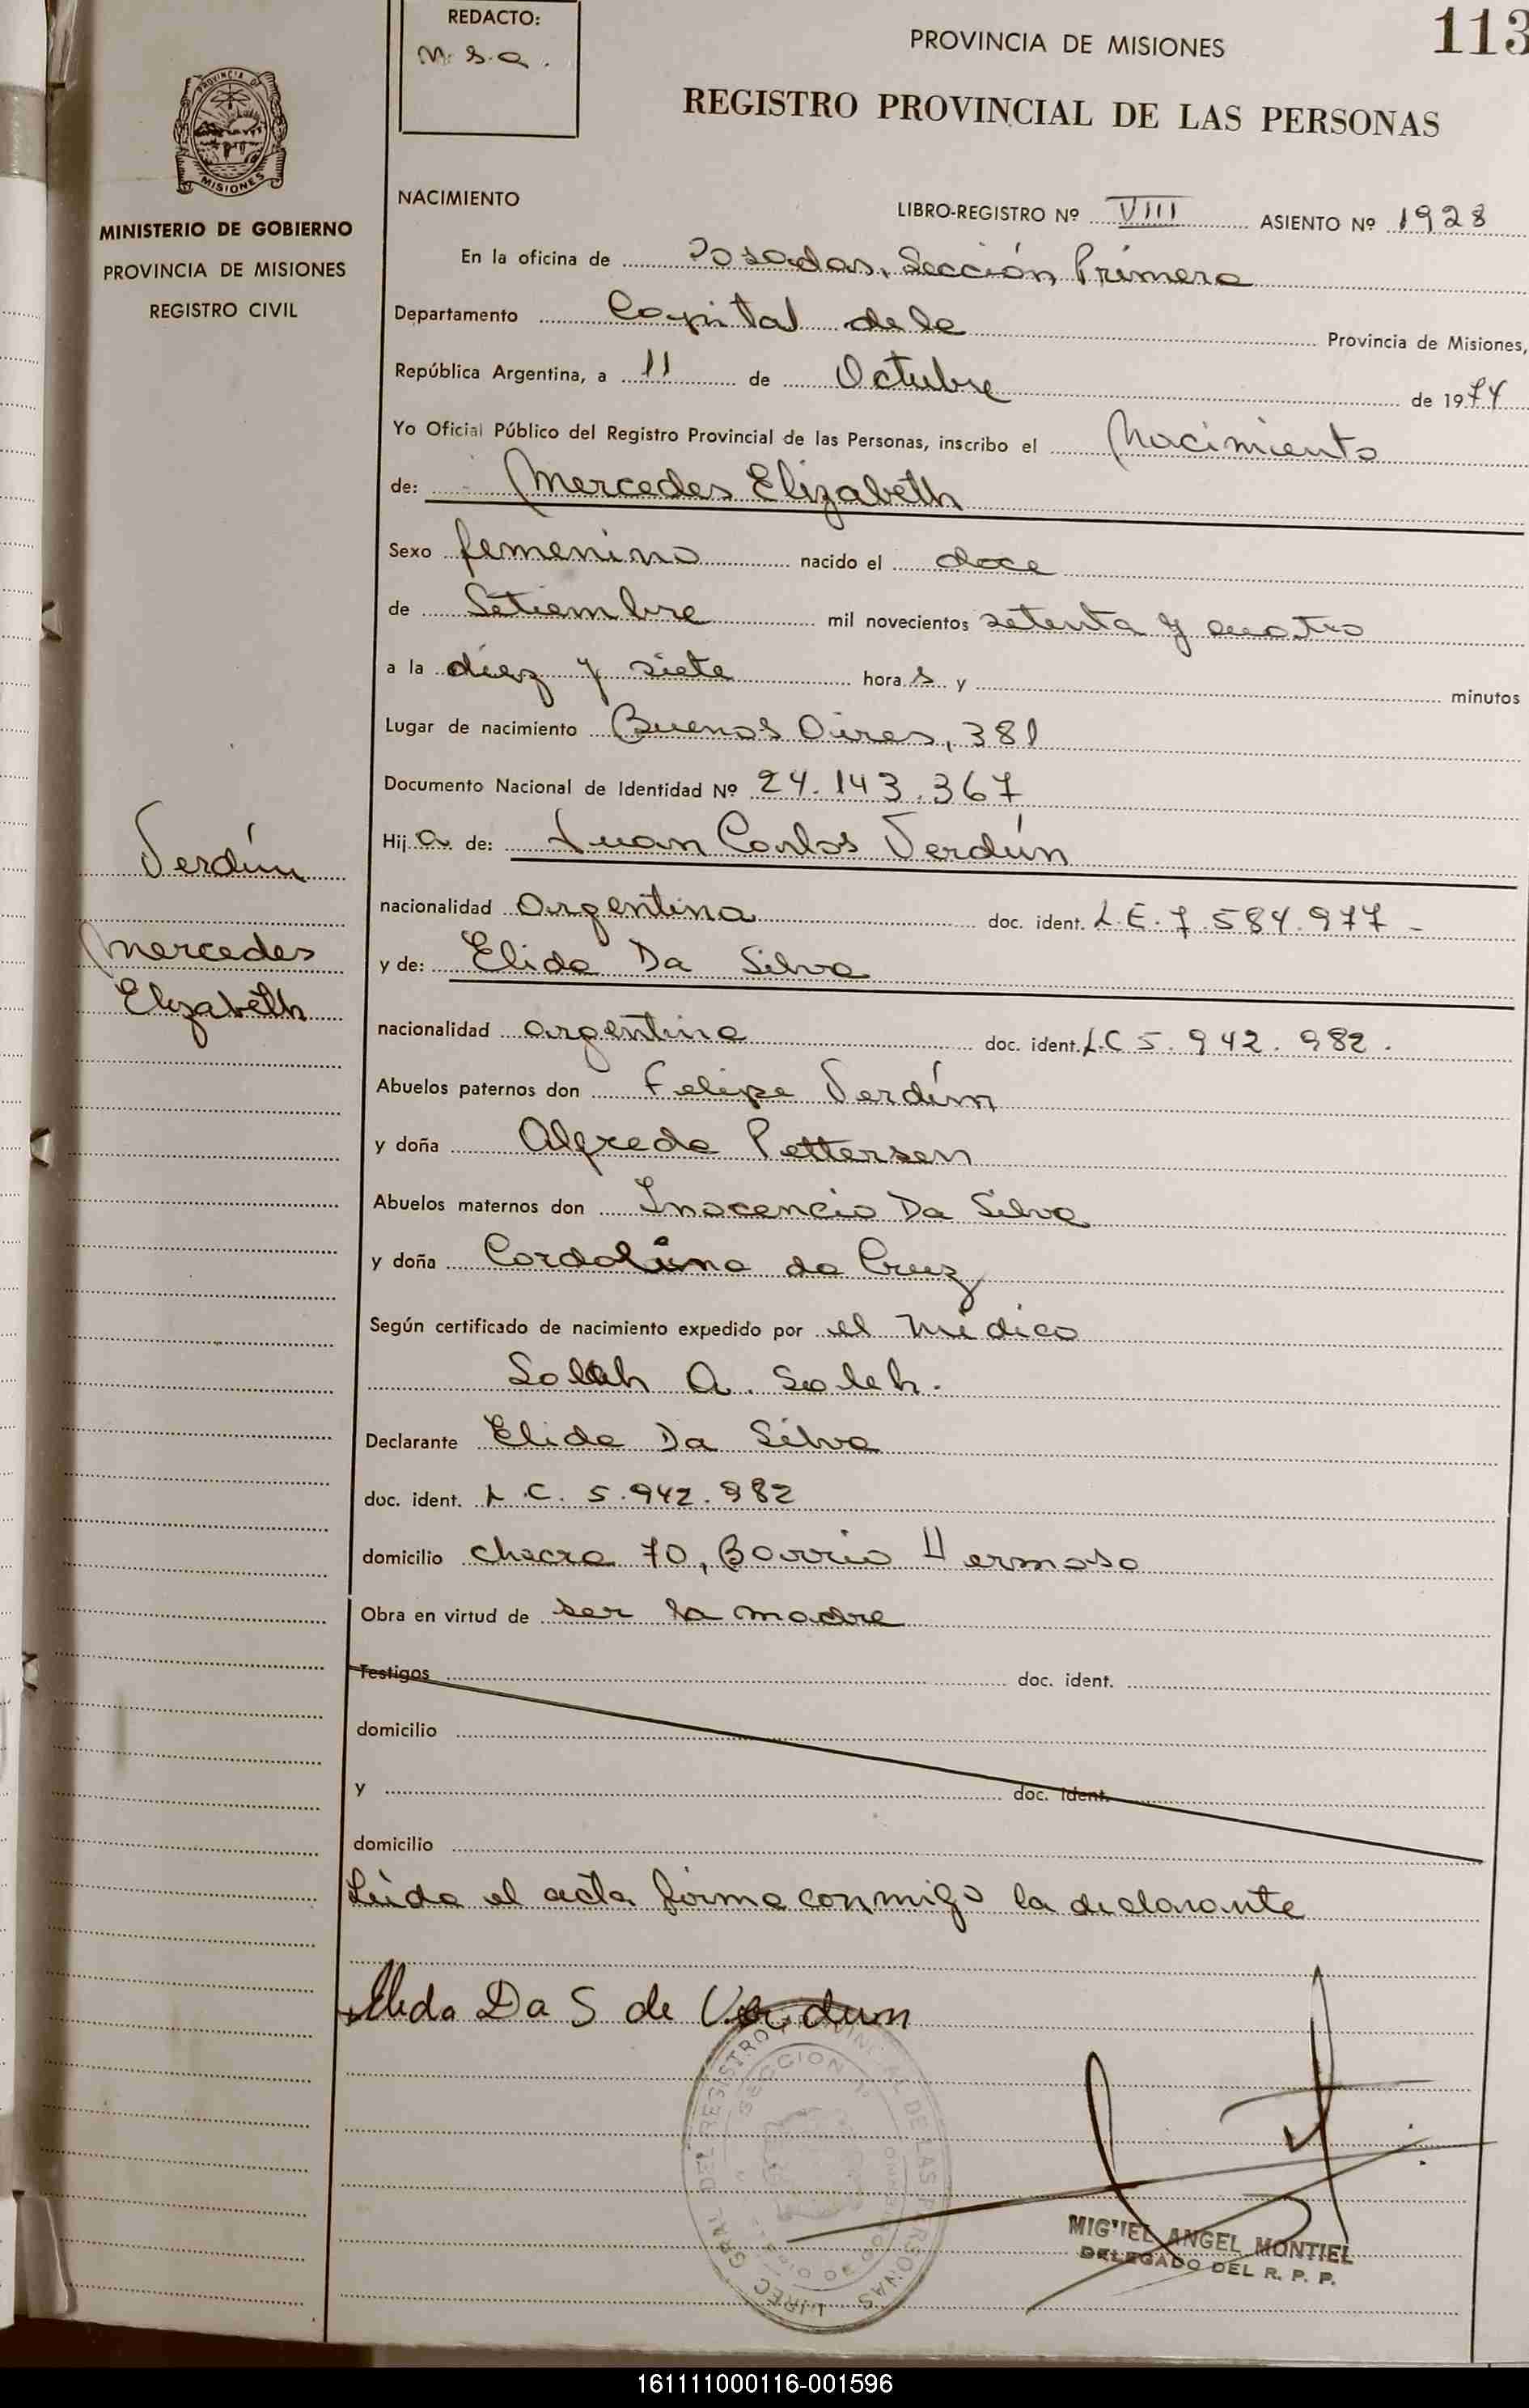 REDACTO:
M. S. a.
PROVINCIA DE MISIONES
113
REGISTRO PROVINCIAL DE LAS PERSONAS
PROVINCIA DE
MISIONES
MINISTERIO DE GOBIERNO
PROVINCIA DE MISIONES
REGISTRO CIVIL
NACIMIENTO
LIBRO-REGISTRO Nº VIII ASIENTO Nº 1928
En la oficina de Posadas, Sección Primera
Departamento Capital de la Provincia de Misiones,
República Argentina, a 11 de Octubre de 1974
Yo Oficial Público del Registro Provincial de las Personas, inscribo el Nacimiento
de: Mercedes Elizabeth
Sexo femenino nacido el doce
de Setiembre mil novecientos setenta y cuatro
a la diez y siete hora s y minutos
Lugar de nacimiento Buenos Aires, 381
Documento Nacional de Identidad Nº 24.143.367
Hij a de: Juan Carlos Verdún
nacionalidad argentina doc. ident. L.E. 7.584.977 -
y de: Elida Da Silva
nacionalidad argentina doc. ident. L.C 5.942.982.
Abuelos paternos don Felipe Verdún
y doña Alfreda Pettersen
Abuelos maternos don Inocencio Da Silva
y doña Cordolina da Cruz
Según certificado de nacimiento expedido por el médico
Saleh A. Saleh.
Declarante Elida Da Silva
doc. ident. L.C. 5.942.982
domicilio chacra 70, Barrio Hermoso
Obra en virtud de ser la madre
Testigos doc. ident.
domicilio
y doc. ident.
domicilio
Leída el acta firma conmigo la declarante
Elida Da S de Verdun
Verdún
Mercedes
Elizabeth
DIREC. GRAL. DEL REGISTRO PROVINCIAL DE LAS PERSONAS
SECCION
MIGUEL ANGEL MONTIEL
DELEGADO DEL R. P. P.
161111000116-001596